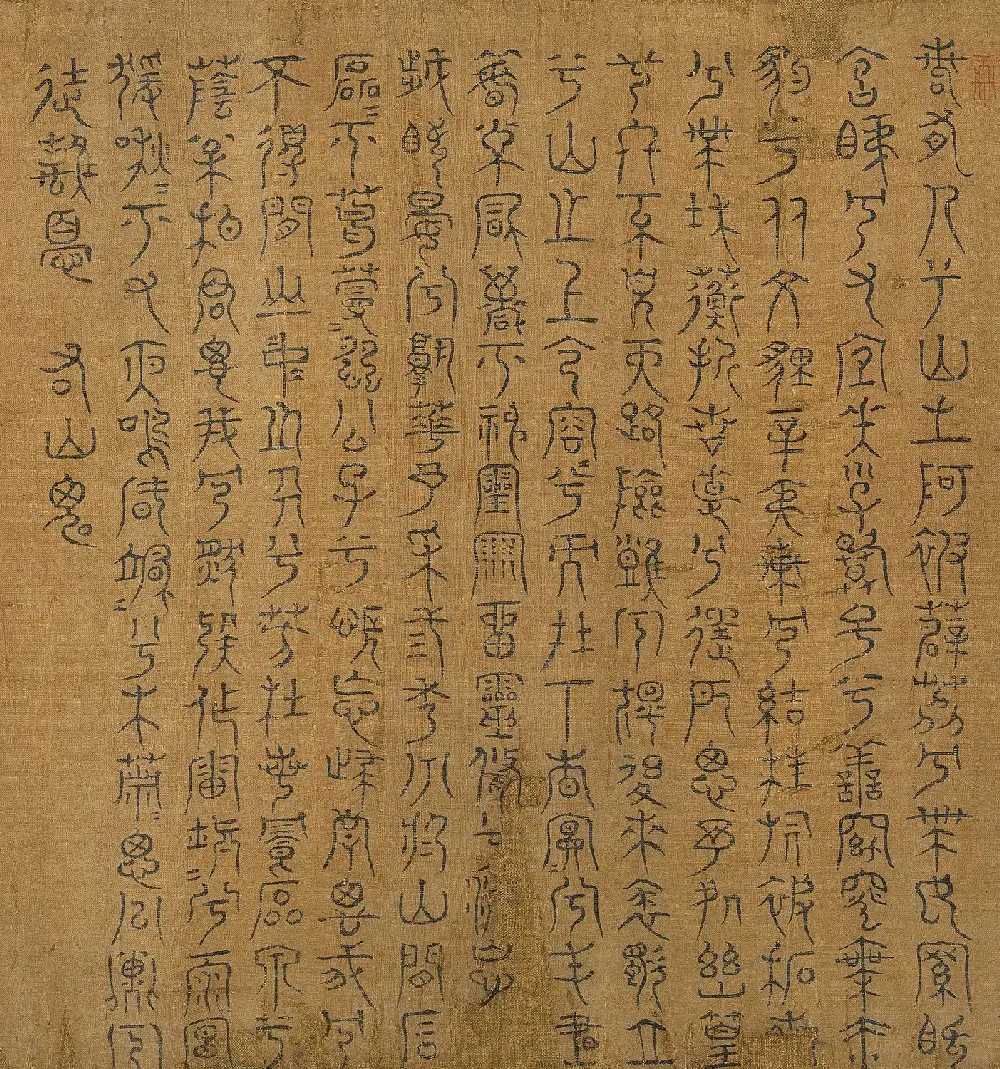 若有人兮山之阿被薜荔兮帶女羅既
含睇兮又宜笑子慕予兮善窈窕乘赤
豹兮从文貍辛夷車兮結桂旗被石蘭
兮帶杜衡折芳馨兮遺所思余處幽篁
兮終不見天路險難兮獨後來表獨立
兮山之上雲容容兮而在下杳冥冥兮羌晝
晦東風飄兮神靈雨留靈修兮憺忘
歲既晏兮孰華予采三秀兮於山間石
磊磊兮葛蔓蔓怨公子兮悵忘歸君思我兮
不得間山中之人兮芳杜若飲石泉兮
蔭松柏君思我兮然疑作雷填填兮雨冥
猿啾啾兮又夜鳴風颯颯兮木蕭蕭思公子兮
徒離憂 右山鬼